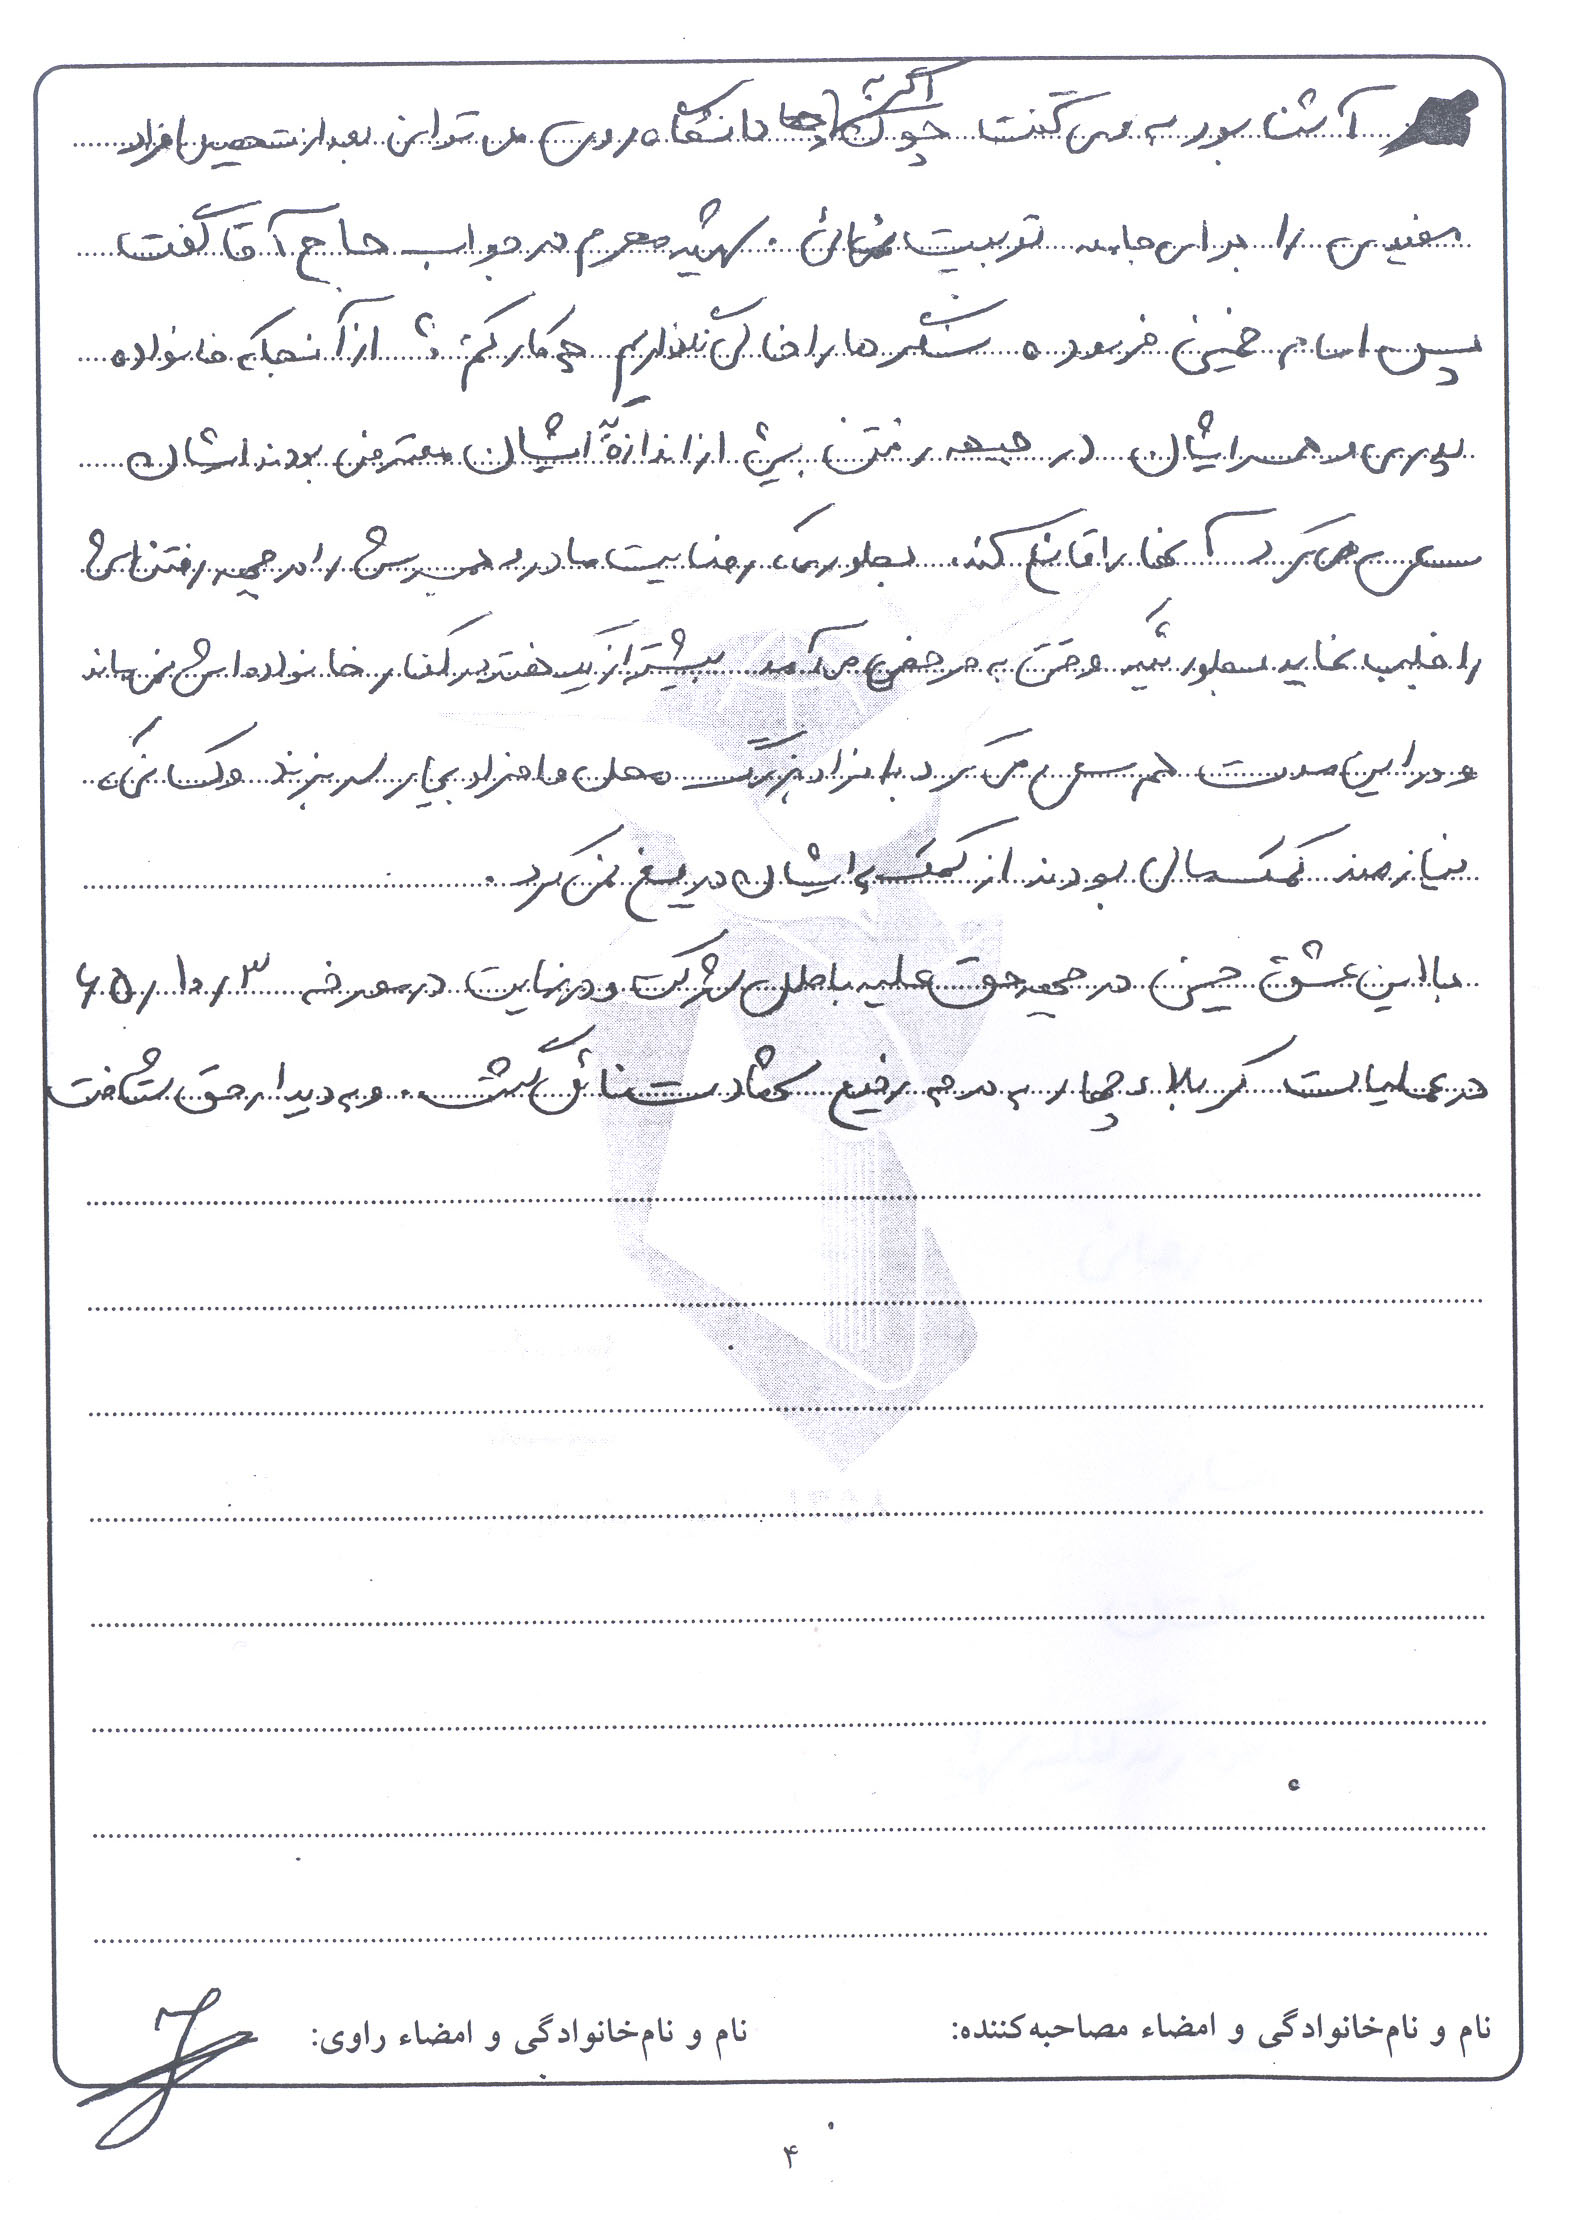 آشنا بود به وی گفت چون اگر به دانشگاه روی می توانی بعد از تحصیل افراد
مفیدی را برای جامعه تربیت نمائی. شهید محرم در جواب حاج آقا گفت
پس امام خمینی فرموده سنگرها را خالی نگذاریم چکار کنم؟ از آنجا که خانواده
پدری و همسر ایشان در جبهه رفتن بیش از اندازه ایشان معترض بودند ایشان
سعی می کرد آنها را قانع کند. بطوریکه رضایت مادر و همسرش را در جبهه رفتن اش
را جلب نماید بطوریکه وقتی به مرخصی می آمد بیشتر از یک هفته در کنار خانواده اش نمی ماند
و در این مدت هم سعی می کرد با افراد بزرگ محل و افراد بیمار سر بزند و کسانیکه
نیازمند کمک مالی بودند از کمک به ایشان دریغ نمی کرد.
با این عشق حسینی در جبهه حق علیه باطل شرکت و در نهایت در مورخه ۶۵/۱۰/۳
در عملیات کربلاء چهار به درجه رفیع شهادت نائل گشت. و به دیدار حق شتافت
نام و نام‌خانوادگی و امضاء مصاحبه‌کننده: نام و نام‌خانوادگی و امضاء راوی:
۴